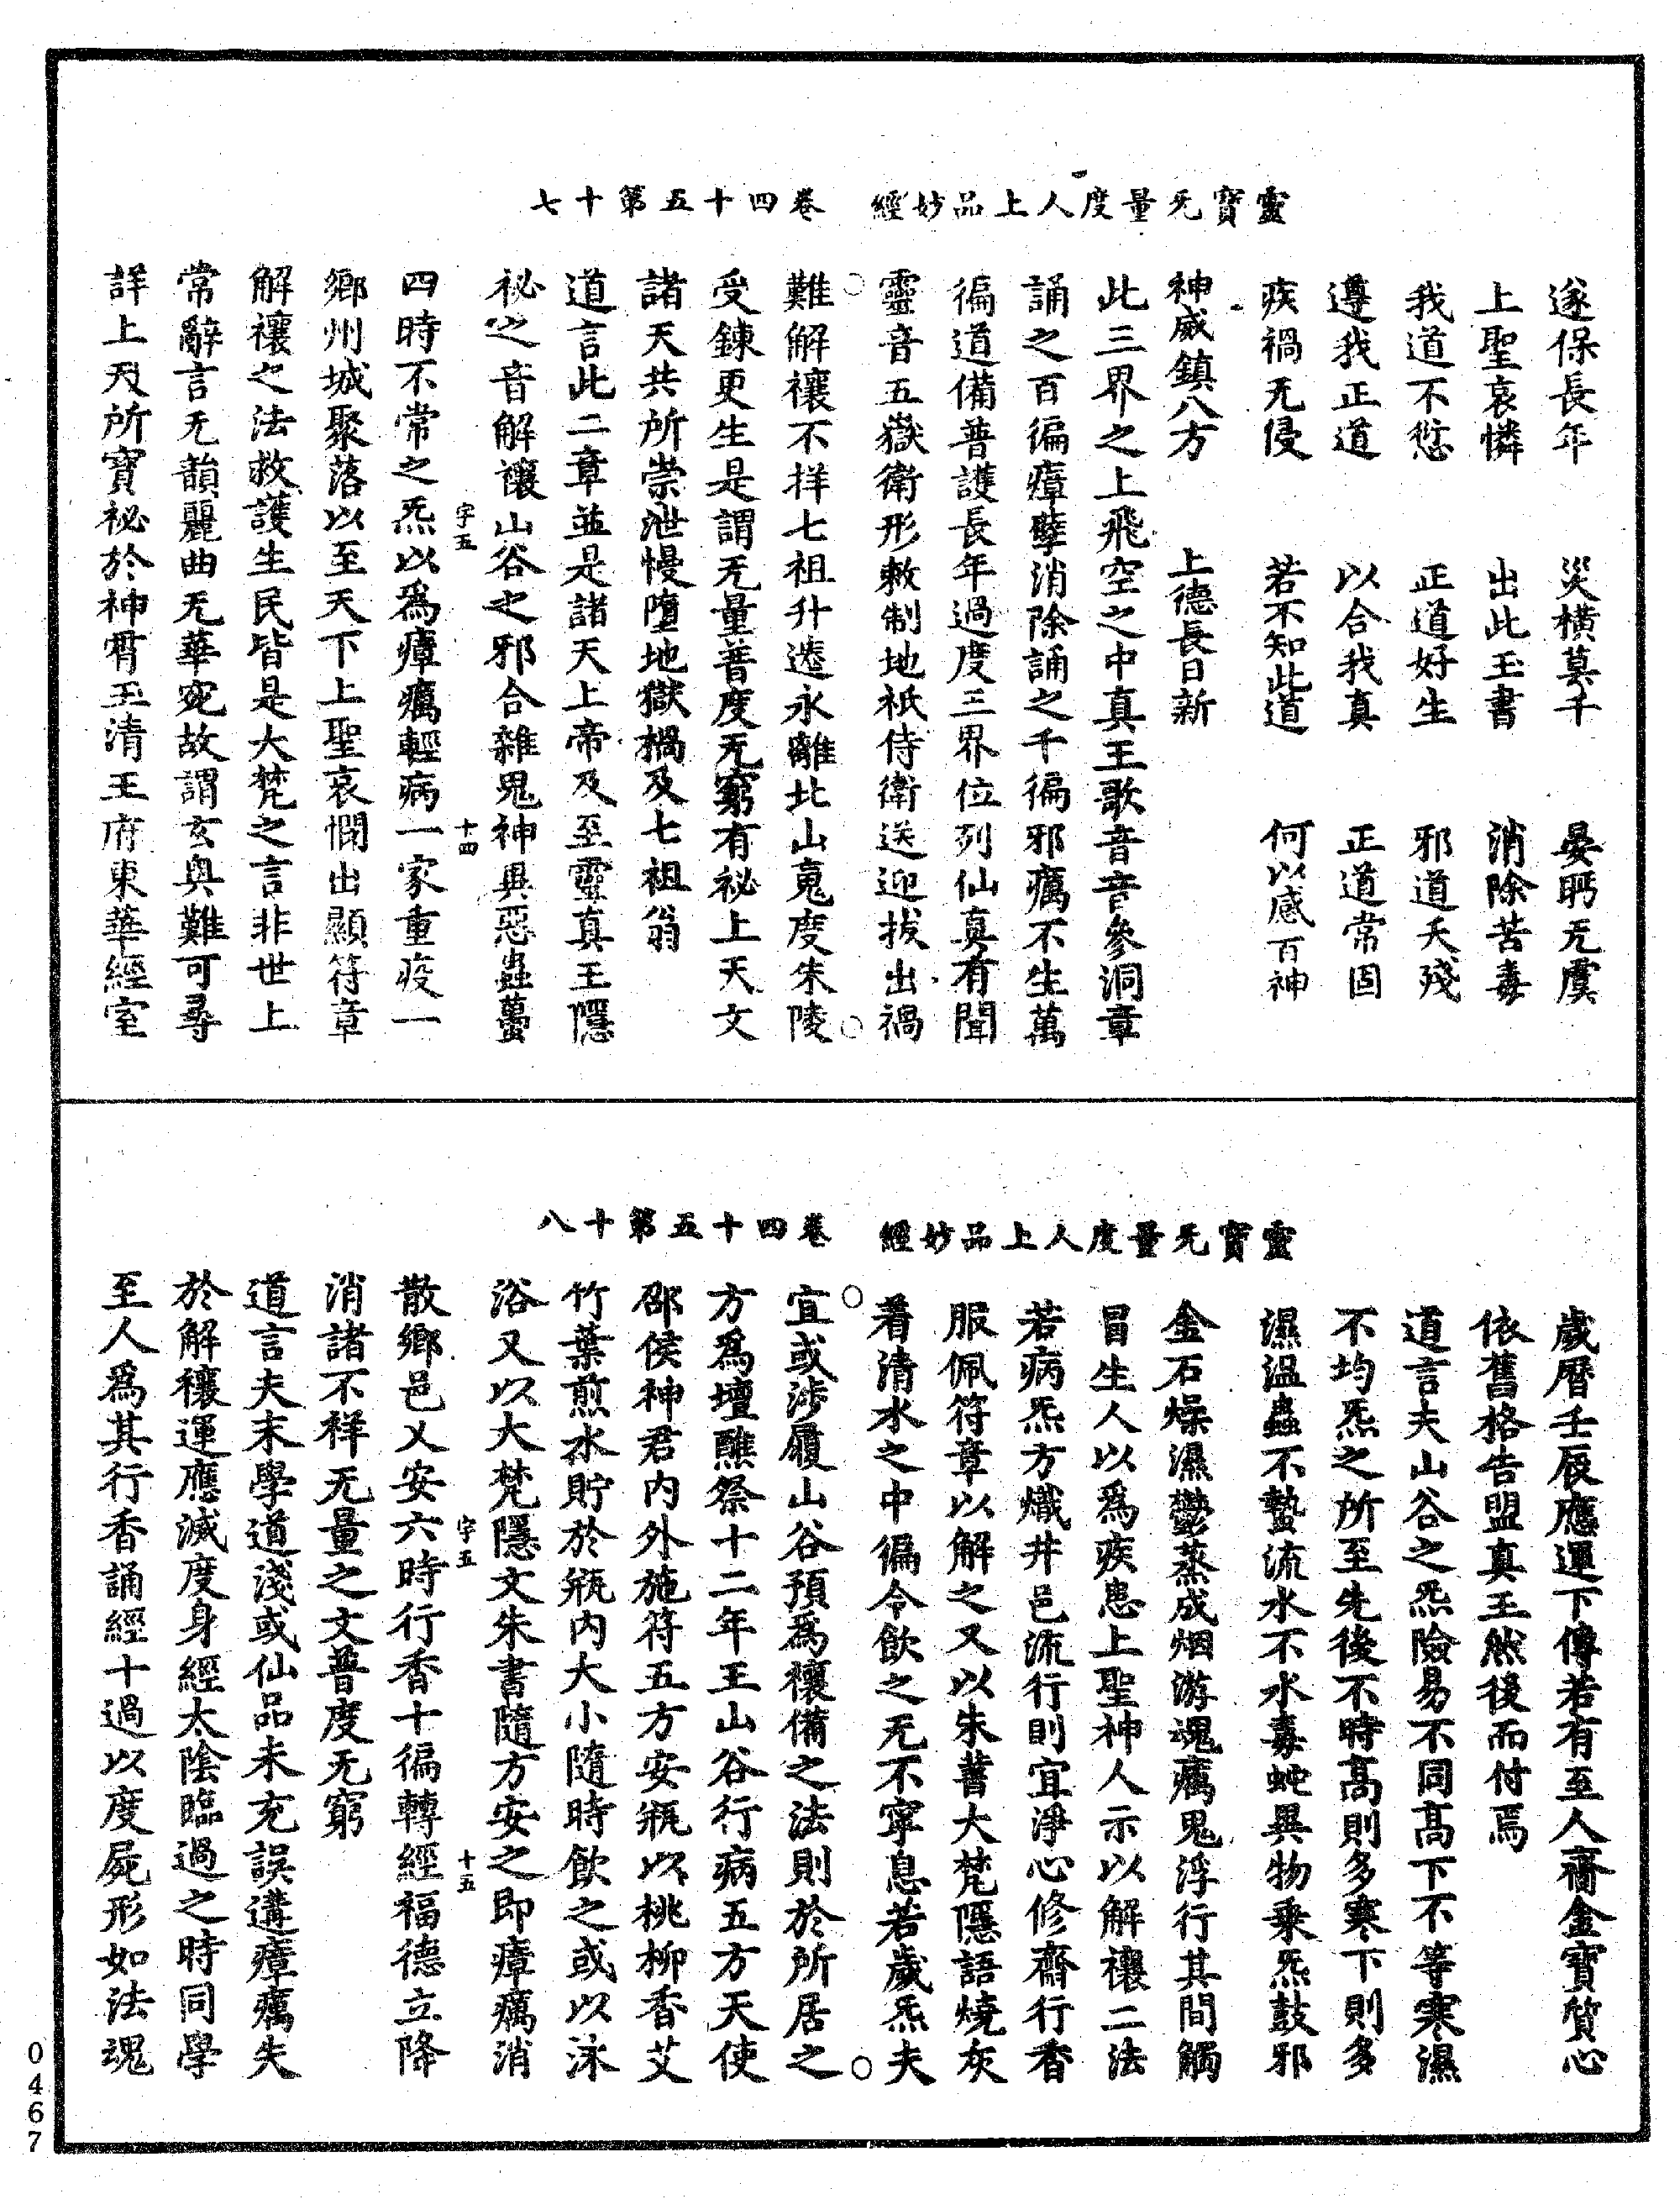 靈寶无量度人上品妙經　卷四十五第十七
遂保長年　災橫莫干　晏眄无虞
上聖哀憐　出此玉書　消除苦毒
我道不愆　正道好生　邪道夭殘
遵我正道　以合我真　正道常固
疾禍无侵　若不知此道　何以感百神
神威鎮八方　上德長日新
此三界之上飛空之中真王歌音音參洞章
誦之百徧瘴孽消除誦之千徧邪癘不生萬
徧道備普護長年過度三界位列仙真有聞
靈音五嶽衛形敕制地祇侍衛送迎拔出禍
難解禳不祥七祖升遷永離北山䰟度朱陵
受鍊更生是謂无量普度无窮有祕上天文
諸天共所崇泄慢墮地獄禍及七祖翁
道言此二章並是諸天上帝及至靈真王隱
祕之音解禳山谷之邪合雜鬼神異惡蟲蠱
四時不常之炁以為瘴癘輕病一家重疫一
字五　十四
鄉州城聚落以至天下上聖哀憫出顯符章
解禳之法救護生民皆是大梵之言非世上
常辭言无韻麗曲无華宛故謂玄奧難可尋
詳上天所寶祕於神霄玉清王府東華經室
靈寶无量度人上品妙經　卷四十五第十八
歲曆壬辰應運下傳若有至人齎金寶質心
依舊格告盟真王然後而付焉
道言夫山谷之炁險易不同高下不等寒濕
不均炁之所至先後不時高則多寒下則多
濕溫蟲不蟄流水不水毒蛇異物乘炁鼓邪
金石燥濕鬱蒸成烟游魂癘鬼浮行其間觸
冒生人以為疾患上聖神人示以解禳二法
若病炁方熾井邑流行則宜淨心修齋行香
服佩符章以解之又以朱書大梵隱語燒灰
着清水之中徧令飲之无不寧息若歲炁夫
宜或涉履山谷預為禳備之法則於所居之
方為壇醮祭十二年王山谷行病五方天使
邵侯神君內外施符五方安瓶以桃柳香艾
竹葉煎水貯於瓶內大小隨時飲之或以沐
浴又以大梵隱文朱書隨方安之即瘴癘消
散鄉邑乂安六時行香十徧轉經福德立降
字五　十五
消諸不祥无量之文普度无窮
道言夫末學道淺或仙品未充誤遘瘴癘失
於解禳運應滅度身經太陰臨過之時同學
至人為其行香誦經十過以度屍形如法魂
0467